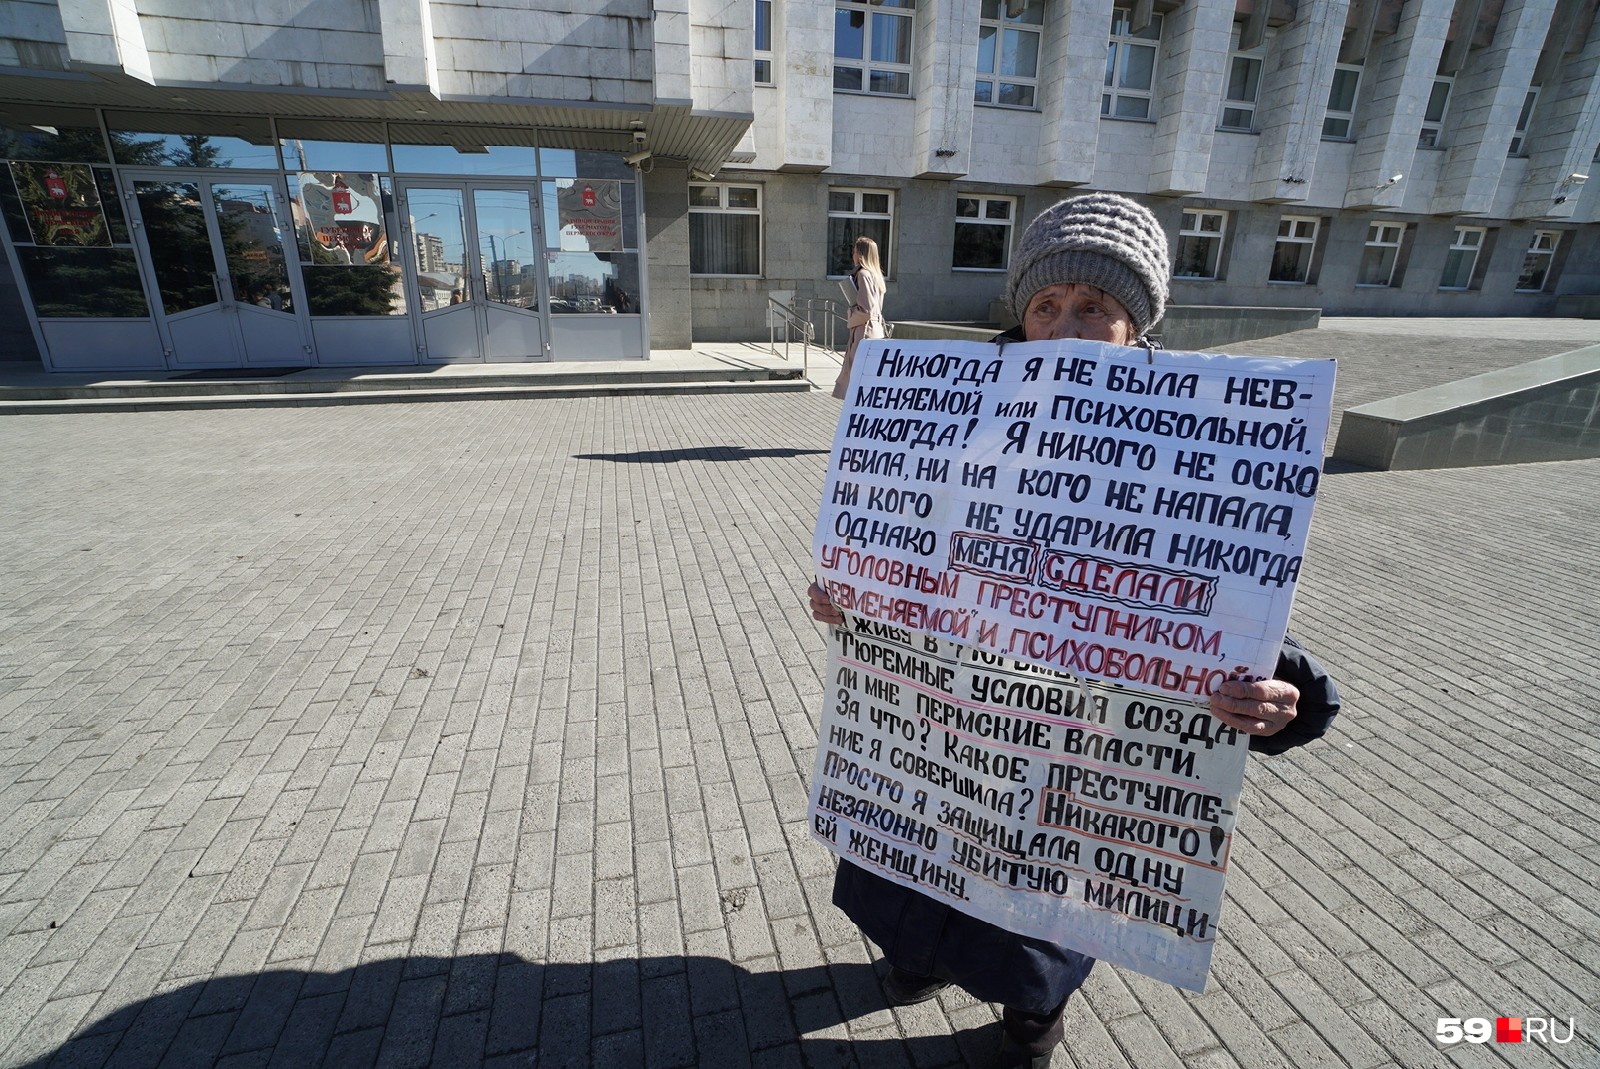 ГУБЕРНАТОР
АДМИНИСТРАЦИЯ
ГУБЕРНАТОРА
ПЕРМСКОГО КРАЯ
НИКОГДА Я НЕ БЫЛА НЕВ-
МЕНЯЕМОЙ ИЛИ ПСИХОБОЛЬНОЙ.
НИКОГДА! Я НИКОГО НЕ ОСКО
РБИЛА, НИ НА КОГО НЕ НАПАЛА,
НИ КОГО НЕ УДАРИЛА НИКОГДА
ОДНАКО МЕНЯ СДЕЛАЛИ
УГОЛОВНЫМ ПРЕСТУПНИКОМ,
НЕВМЕНЯЕМОЙ" И "ПСИХОБОЛЬНОЙ"
Я ЖИВУ В ТЮРЬМЕ,
ТЮРЕМНЫЕ УСЛОВИЯ СОЗДА-
ЛИ МНЕ ПЕРМСКИЕ ВЛАСТИ.
ЗА ЧТО? КАКОЕ ПРЕСТУПЛЕ-
НИЕ Я СОВЕРШИЛА? НИКАКОГО!
ПРОСТО Я ЗАЩИЩАЛА ОДНУ
НЕЗАКОННО УБИТУЮ МИЛИЦИ-
ЕЙ ЖЕНЩИНУ.
59 RU